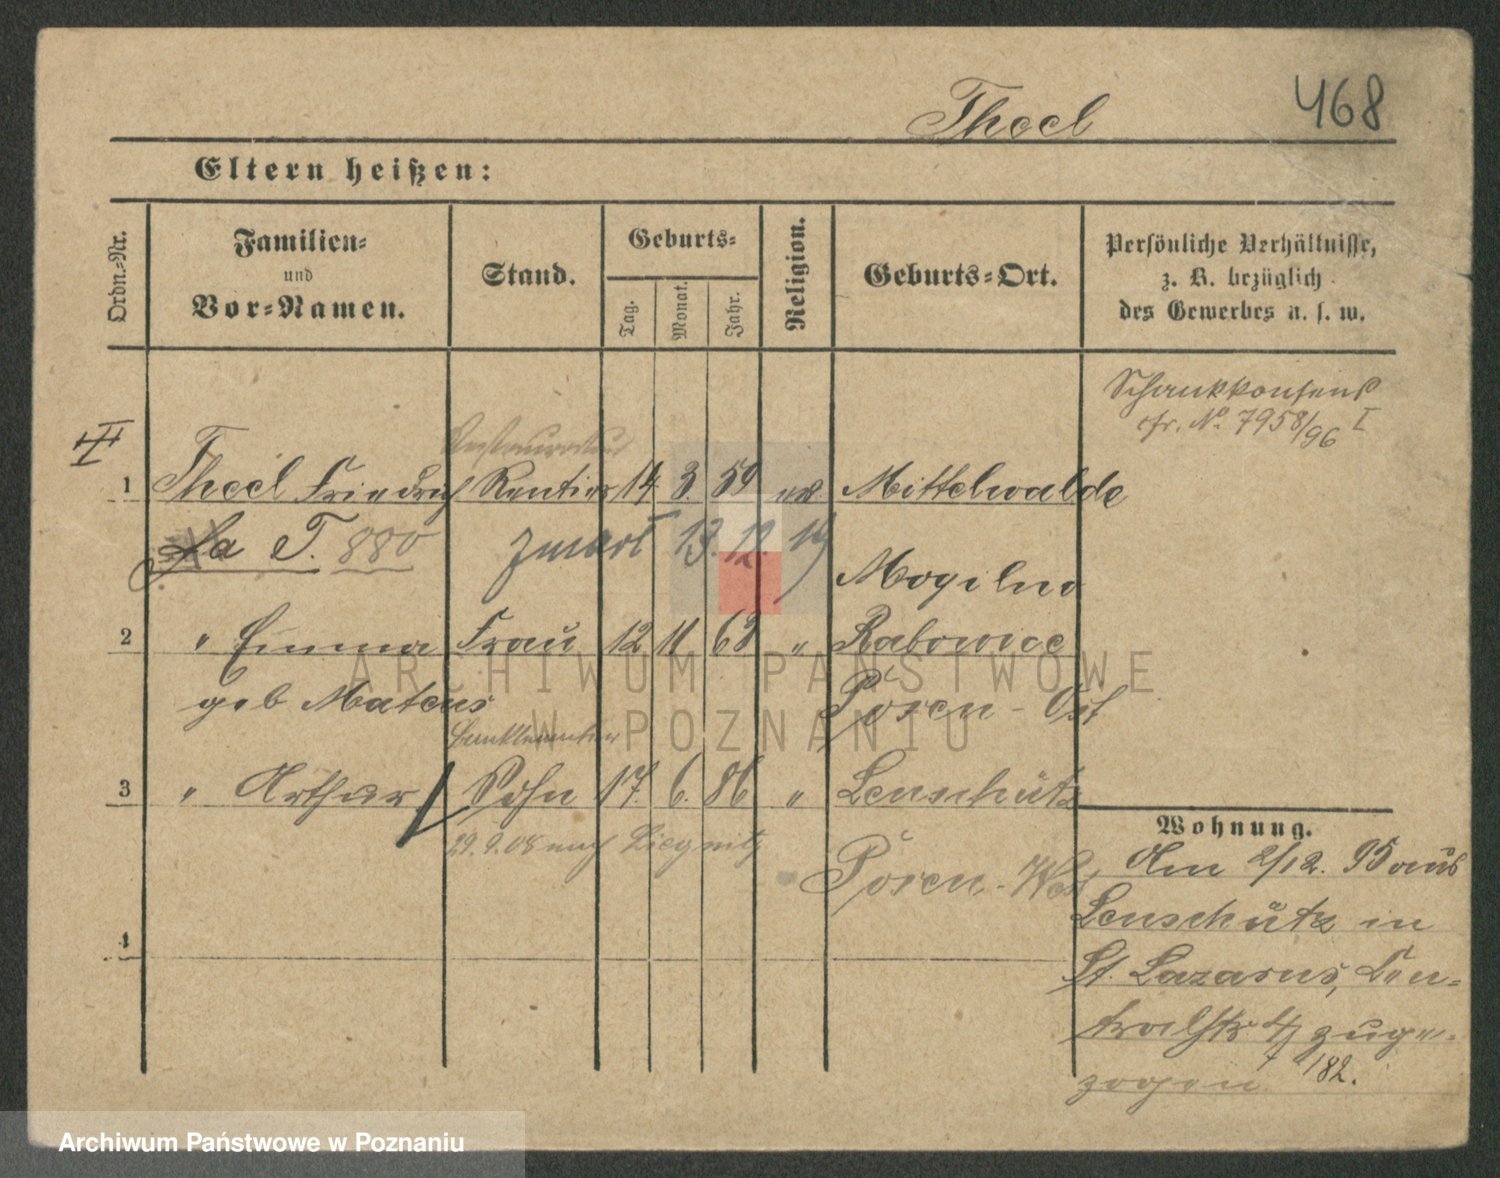 Theel 468
Eltern heißen:
Ordn.-Nr.
Familien-
und
Vor-Namen.
Stand.
Geburts-
Tag.
Monat.
Jahr.
Religion.
Geburts-Ort.
Persönliche Verhältnisse,
z. B. bezüglich
des Gewerbes u. s. w.
Schankkonsens
cfr. No. 7958/96 I
Restaurateur
1 Theel Friedrich Rentier 14 3. 59 ev. Mittelwalde
La T. 880 zmarł 13.12.19
Mogilno
2 " Emma Frau 12 11 63 " Rabowice
geb Mateus Posen-Ost
3 " Arthur Sohn 17. 6. 86 " Lenschütz
29.9.08 nach Liegnitz
Posen-West
4
Wohnung.
Am 2/12. 95 aus
Lenschütz in
St. Lazarus, Cen-
tralstr zuge-
zogen 182.
ARCHIWUM PAŃSTWOWE
W POZNANIU
Archiwum Państwowe w Poznaniu